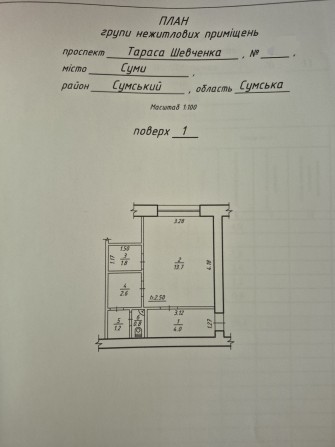 ПЛАН
групи нежитлових приміщень
проспект Тараса Шевченка , № ,
місто Суми ,
район Сумський , область Сумська
Масштаб 1:100
поверх 1
3.28
1.50
1.17
3
1.8
2
13.7
4.18
4
2.6
h=2.50
5
1.2
6
0.8
3.12
1
4.0
1.27